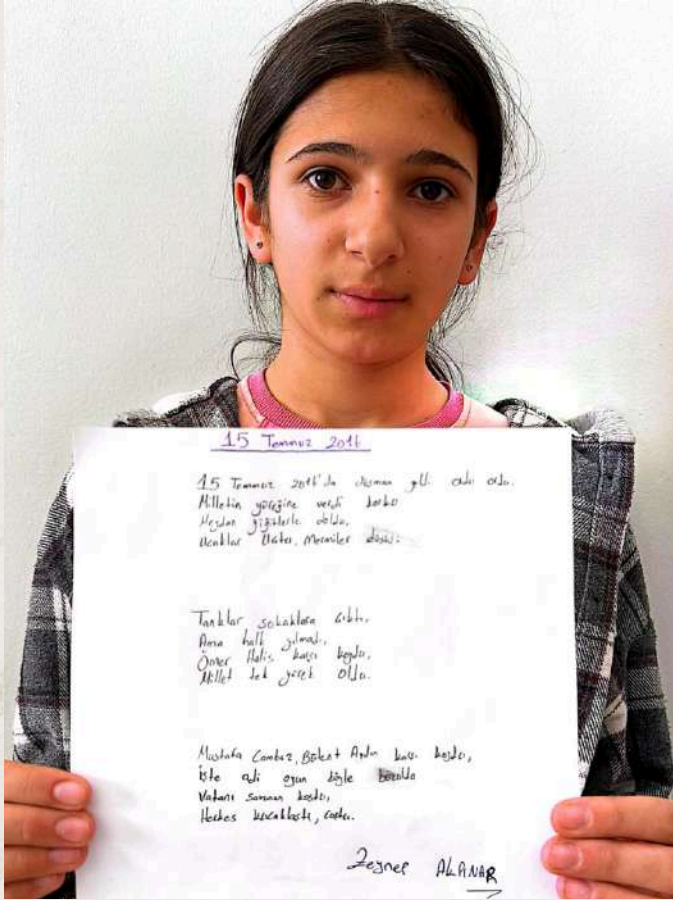 15 Temmuz 2016
15 Temmuz 2016'da düşman geldi ordu ordu.
Milletin yüreğine verdi korku
Meydan yiğitlerle doldu,
Ucaklar Uctu, Mermiler düştü.
Tanklar sokaklara çıktı,
Ama halk yılmadı,
Ömer Halis karşı koydu,
Millet tek yürek oldu.
Mustafa Cambaz, Bülent Aydın karşı koydu,
İşte adi oyun böyle bozuldu
Vatanı sarınan koştu,
Herkes kucaklaştı, coştu.
Zeynep AKANAR